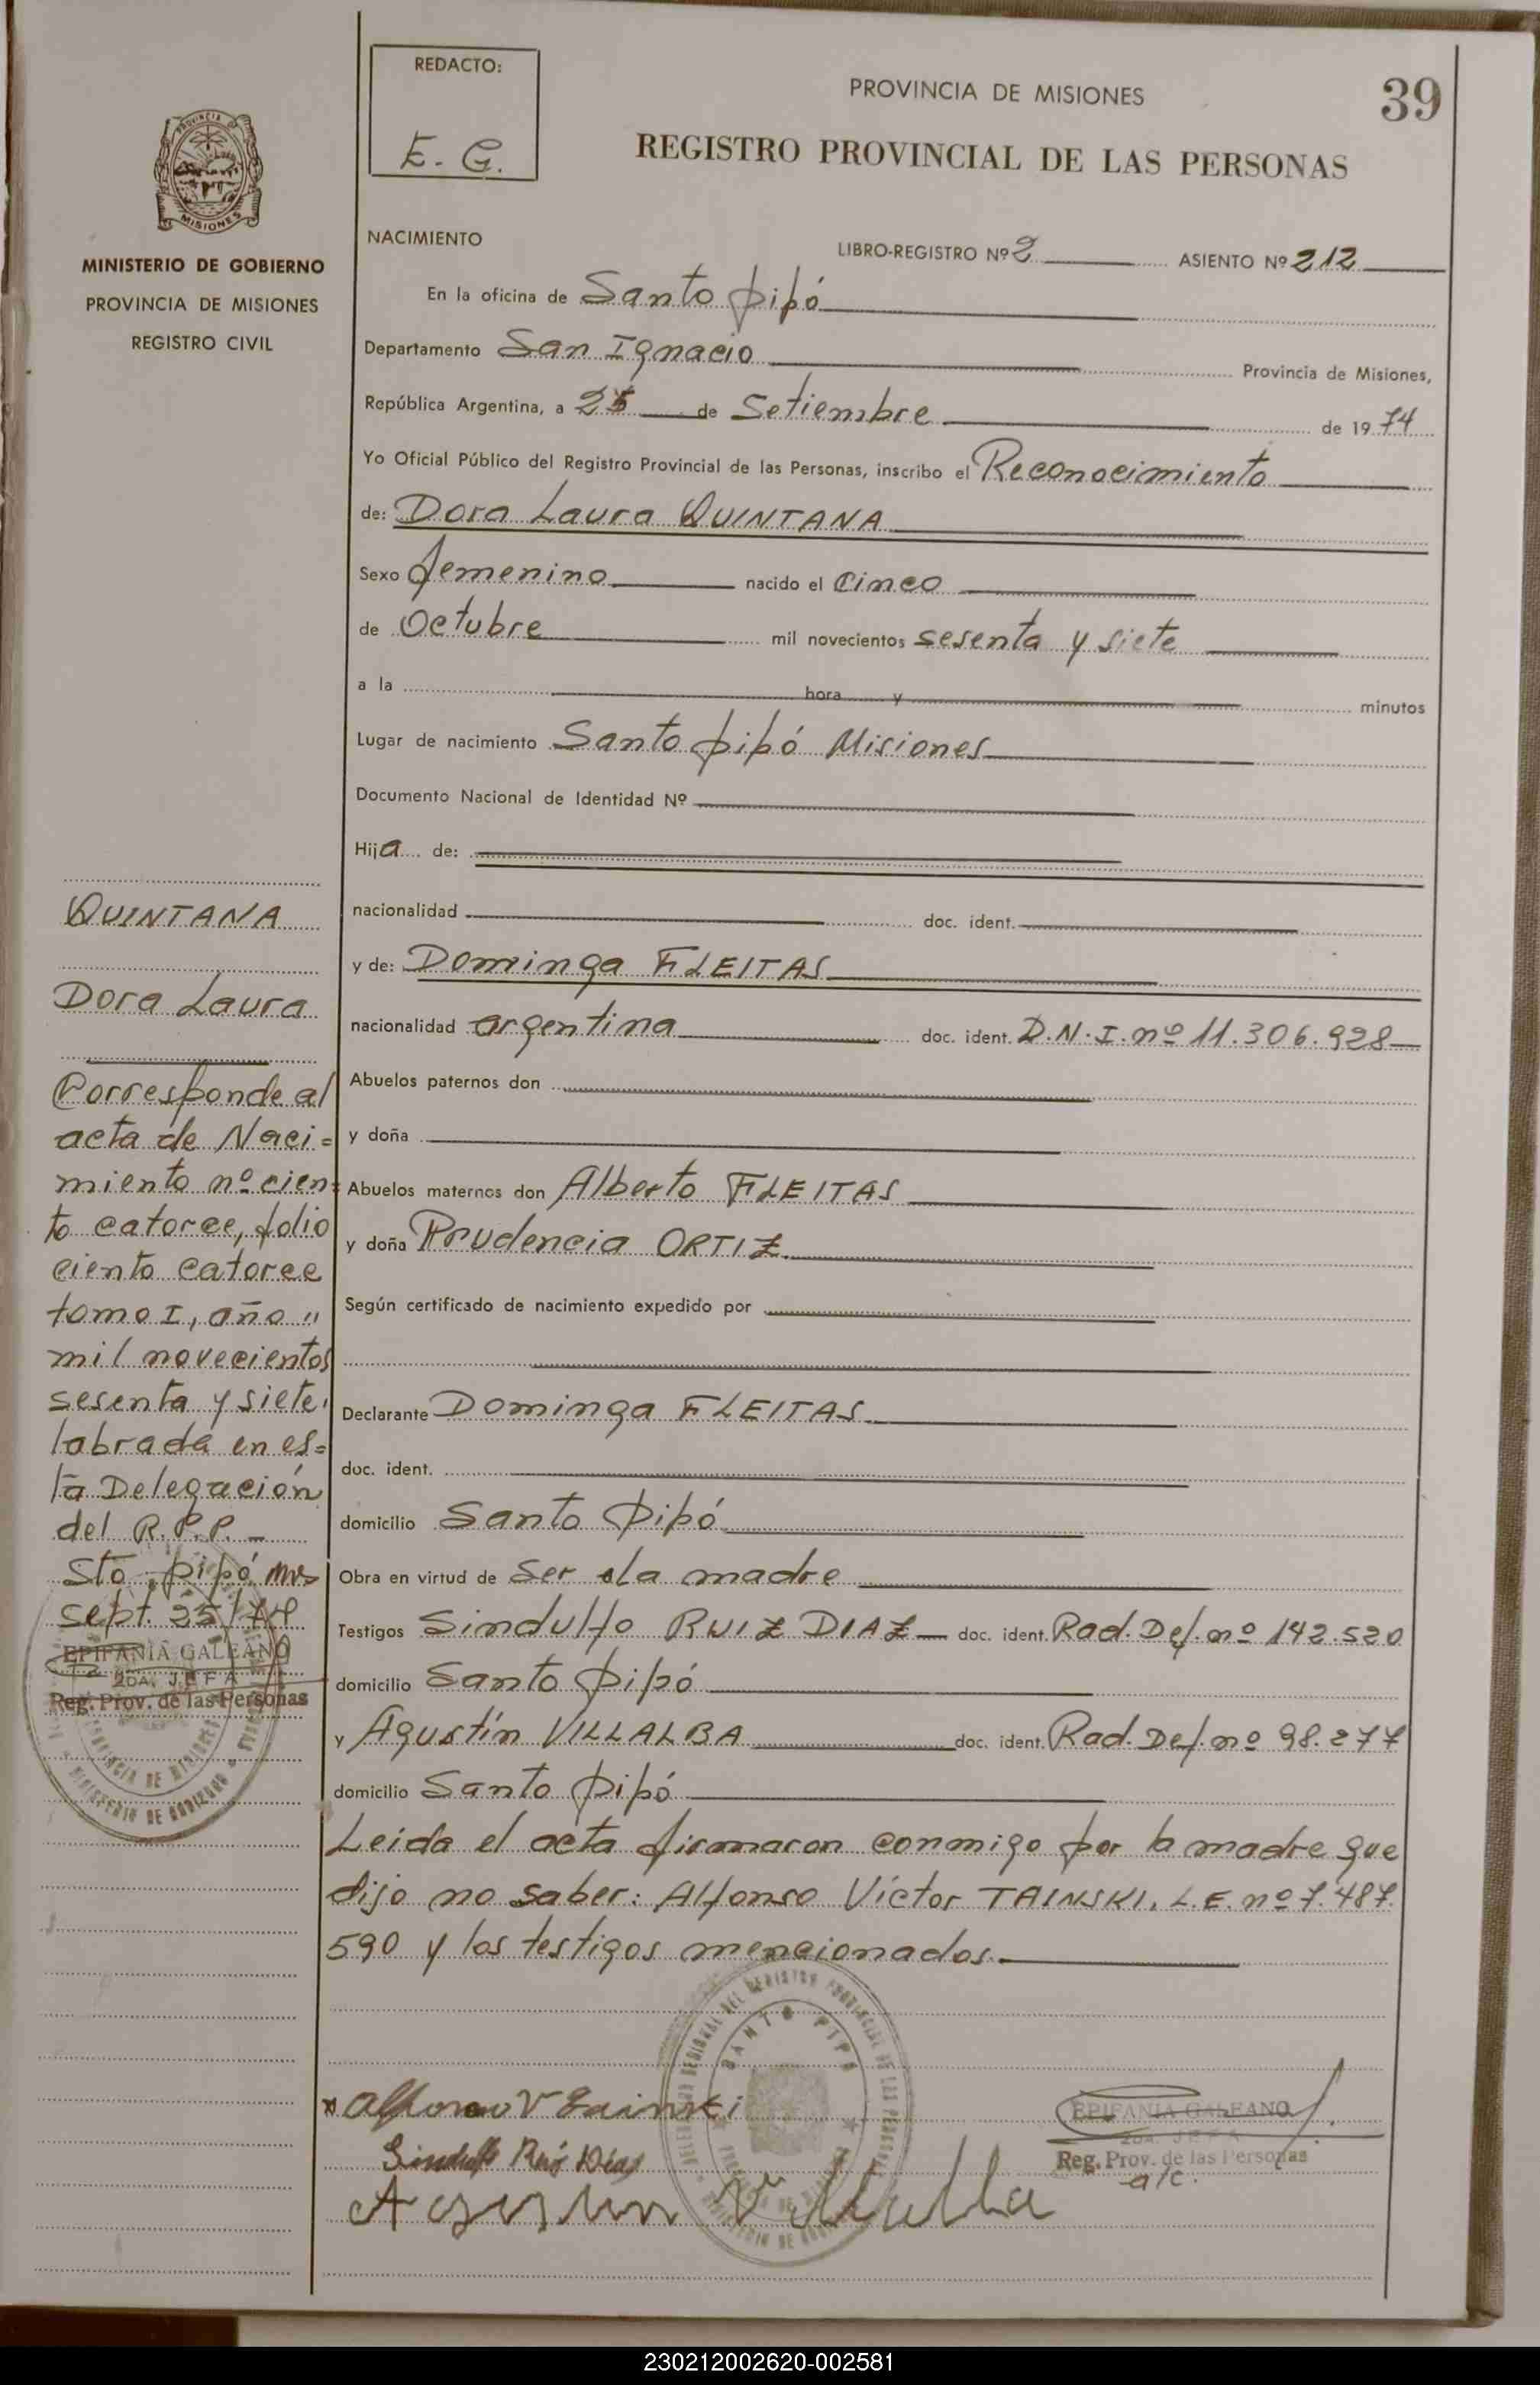 REDACTO:
E. G.
PROVINCIA DE MISIONES
39
REGISTRO PROVINCIAL DE LAS PERSONAS
PROVINCIA DE
MISIONES
MINISTERIO DE GOBIERNO
PROVINCIA DE MISIONES
REGISTRO CIVIL
NACIMIENTO
LIBRO-REGISTRO Nº 2 ASIENTO Nº 212
En la oficina de Santo pipó
Departamento San Ignacio Provincia de Misiones,
República Argentina, a 25 de Setiembre de 1974
Yo Oficial Público del Registro Provincial de las Personas, inscribo el Reconocimiento
de: Dora Laura QUINTANA
Sexo femenino nacido el cinco
de Octubre mil novecientos sesenta y siete
a la hora y minutos
Lugar de nacimiento Santo pipó Misiones
Documento Nacional de Identidad Nº
Hija de:
nacionalidad doc. ident.
y de: Dominga FLEITAS
nacionalidad argentina doc. ident. D.N.I. nº 11.306.928
Abuelos paternos don
y doña
Abuelos maternos don Alberto FLEITAS
y doña Prudencia ORTIZ
Según certificado de nacimiento expedido por
Declarante Dominga FLEITAS
doc. ident.
domicilio Santo Pipó
Obra en virtud de ser la madre
Testigos Sindulfo RUIZ DIAZ doc. ident. Rad. Def. nº 142.520
domicilio Santo Pipó
y Agustín VILLALBA doc. ident. Rad. Def. nº 98.277
domicilio Santo Pipó
Leida el acta firmaron conmigo por la madre que
dijo no saber: Alfonso Víctor TAINSKI, L.E. nº 7.487.
590 y los testigos mencionados.
QUINTANA
Dora Laura
Corresponde al
acta de Naci=
miento nº cien=
to catorce, folio
ciento catorce
tomo I, año "
mil novecientos
sesenta y siete,
labrada en es=
ta Delegación
del R.P.P. —
Sto. pipó Mns
sept. 25/74
EPIFANIA GALEANO
2DA. JEFA
Reg. Prov. de las Personas
PROVINCIA DE MISIONES
MINISTERIO DE GOBIERNO
SANTO PIPO
PROVINCIA DE MISIONES
MINISTERIO DE GOBIERNO
Alfonso V Tainski
Sindulfo Ruiz Diaz
Agustin Villalba
EPIFANIA GALEANO
2DA. JEFA
Reg. Prov. de las Personas
a/c.
230212002620-002581